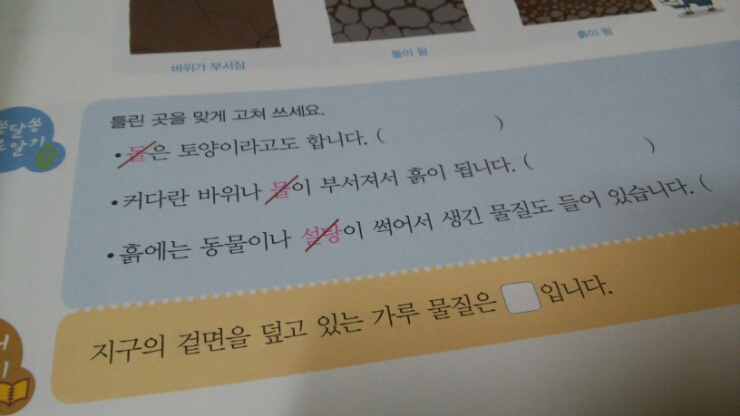 바위가 부서짐
돌이 됨
흙이 됨
틀린 곳을 맞게 고쳐 쓰세요.
• 돌은 토양이라고도 합니다. ( )
• 커다란 바위나 물이 부서져서 흙이 됩니다. ( )
• 흙에는 동물이나 설탕이 썩어서 생긴 물질도 들어 있습니다. (
지구의 겉면을 덮고 있는 가루 물질은 입니다.